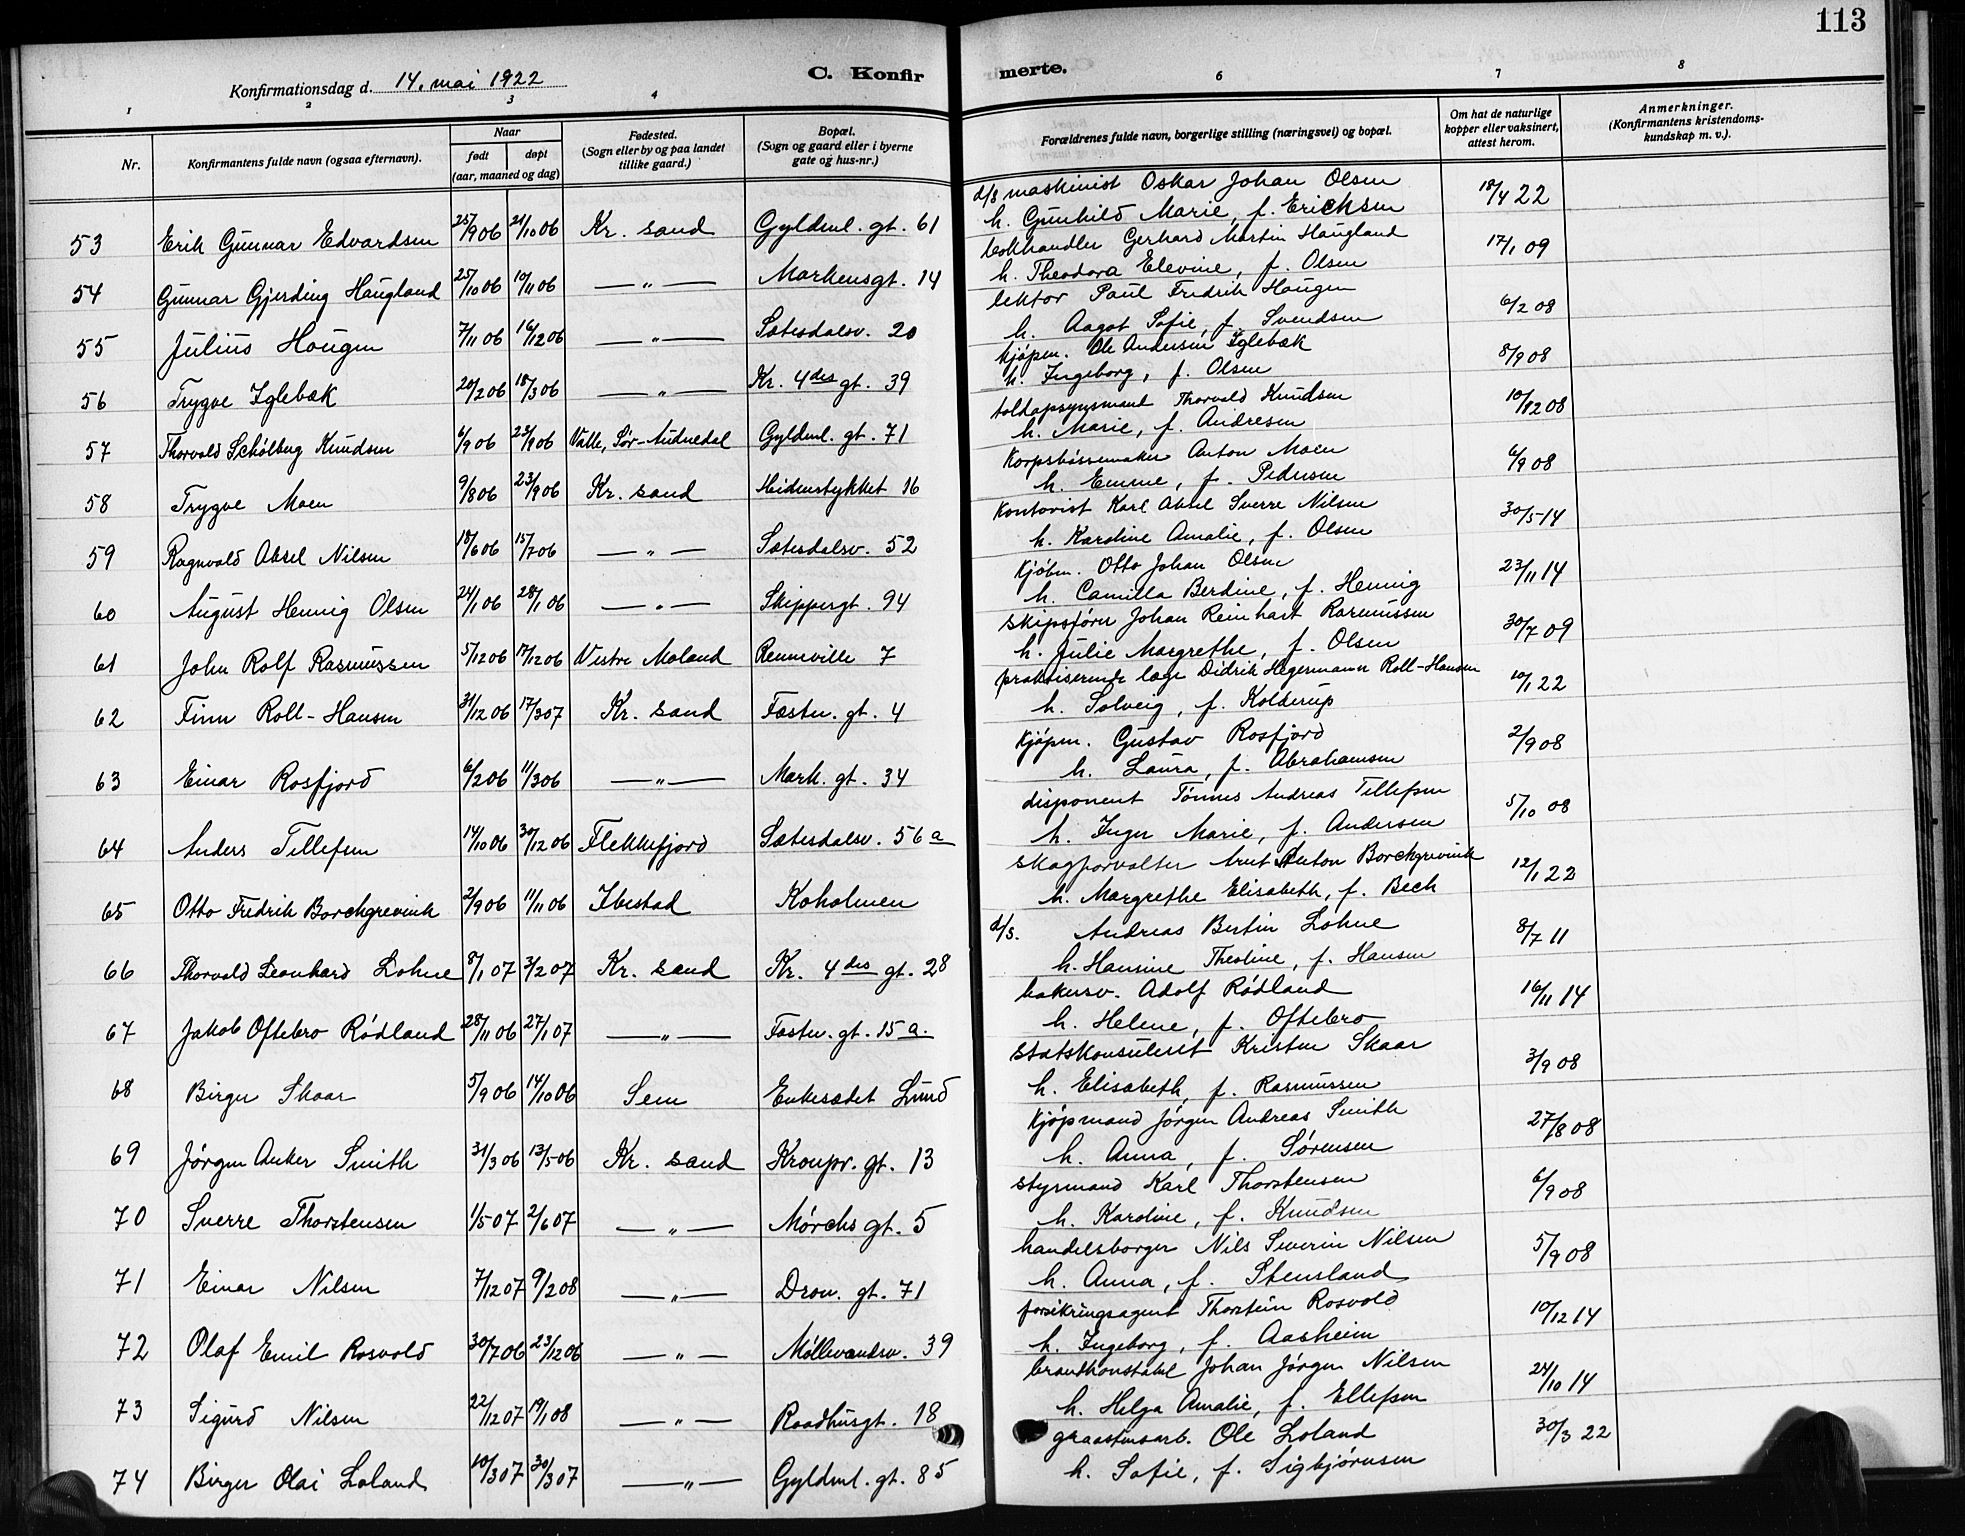 113
Konfirmationsdag d. 14. mai 1922
C. Konfir merte.
1 2 3 4 6 7 8
Nr.
Konfirmantens fulde navn (ogsaa efternavn).
Naar
født døpt
(aar, maaned og dag)
Fødested.
(Sogn eller by og paa landet
tillike gaard.)
Bopæl.
(Sogn og gaard eller i byerne
gate og hus-nr.)
Forældrenes fulde navn, borgerlige stilling (næringsvei) og bopæl.
Om hat de naturlige
kopper eller vaksinert,
attest herom.
Anmerkninger.
(Konfirmantens kristendoms-
kundskap m. v.).
d/s maskinist Oskar Johan Olsen 18/4 22
53 Erik Gunnar Edvardsen 25/9 06 21/10 06 Kr. sand Gyldenl. gt. 61 h. Gunhild Marie, f. Ericksen
bokhandler Gerhard Martin Haugland 17/1 09
54 Gunnar Gjerding Haugland 25/10 06 10/11 06 — " — Markensgt. 14 h. Theodora Elevine, f. Olsen
lektor Paul Fredrik Hougen 6/2 08
55 Julius Hougen 7/11 06 16/12 06 — " — Sætesdalsv. 20 h. Aagot Sofie, f. Svendsen
kjøpm. Ole Andersen Iglebæk 8/9 08
56 Trygve Iglebæk 20/2 06 18/3 06 — " — Kr. 4des gt. 39 h. Ingeborg, f. Olsen
toldopsynsmand Thorvald Knudsen 10/12 08
57 Thorvald Schølberg Knudsen 6/9 06 23/9 06 Valle, Sør-Audnedal Gyldenl. gt. 71 h. Marie, f. Andresen
Korpsbøssemaker Anton Moen 6/9 08
58 Trygve Moen 9/8 06 23/9 06 Kr. sand Heidenstykket 16 h. Emme, f. Pedersen
kontorist Karl Aksel Sverre Nilsen 30/5-14
59 Ragnvald Aksel Nilsen 18/6 06 15/7 06 — " — Sætesdalsv. 52 h. Karoline Amalie, f. Olsen
kjøbm. Otto Johan Olsen 23/11 14
60 August Hennig Olsen 24/1 06 28/1 06 — " — Skippergt. 94 h. Camilla Berdine, f. Hennig
skipsfører Johan Reinhart Rasmussen 30/7 09
61 John Rolf Rasmussen 5/12 06 17/12 06 Vestre Moland Rennville 7 h. Julie Margrethe, f. Olsen
praktiserende læge Didrik Hegermann Roll-Hansen 10/1 22
62 Finn Roll-Hansen 31/12 06 17/3 07 Kr. sand Festn. gt. 4 h. Solveig, f. Kolderup
kjøpm. Gustav Rosfjord 2/9 08
63 Einar Rosfjord 6/2 06 11/3 06 — " — Mark. gt. 34 h. Laura, f. Abrahamsen
disponent Tønnes Andreas Tillefsen 5/10 08
64 Anders Tillefsen 14/10 06 30/12 06 Flekkefjord Sætesdalsv. 56 a h. Inger Marie, f. Andersen
skogforvalter Arnt Anton Borchgrevink 12/1 22
65 Otto Fredrik Borchgrevink 2/9 06 11/11 06 Ibestad Koholmen h. Margrethe Elisabeth, f. Bech
d/s. Andreas Bertin Lohne 8/7 11
66 Thorvald Leonhard Lohne 8/1 07 3/2 07 Kr. sand Kr. 4des gt. 28 h. Hansine Theoline, f. Hansen
bakersv. Adolf Rødland 16/11 14
67 Jakob Oftebro Rødland 28/11 06 27/1 07 — " — Festn. gt. 15 a. h. Helene, f. Oftebro
statskonsulent Kristen Skaar 3/9 08
68 Birger Skaar 5/9 06 14/10 06 Sem Enkesætet Lund h. Elisabeth, f. Rasmussen
kjøpmand Jørgen Andreas Smith 27/8 08
69 Jørgen Anker Smith 31/3 06 13/5 06 Kr. sand Kronpr. gt. 13 h. Anna, f. Sørensen
styrmand Karl Thorstensen 6/9 08
70 Sverre Thorstensen 1/5 07 2/6 07 — " — Mørchs gt. 5 h. Karoline, f. Knudsen
handelsborger Nils Severin Nilsen 5/9 08
71 Einar Nilsen 7/12 07 9/2 08 — " — Dron. gt. 71 h. Anna, f. Stensland
forsikringsagent Thorstein Rosvold 10/12 14
72 Olaf Emil Rosvold 30/7 06 23/12 06 — " — Møllevandsv. 39 h. Ingeborg, f. Aasheim
brandkonstabel Johan Jørgen Nilsen 24/10 14
73 Sigurd Nilsen 22/12 07 19/1 08 — " — Raadhusgt. 18 h. Helga Amalie, f. Ellefsen
graastensarb. Ole Loland 30/3 22
74 Birger Olai Loland 10/3 07 30/3 07 — " — Gyldenl. gt. 85 h. Sofie, f. Sigbjørnsen